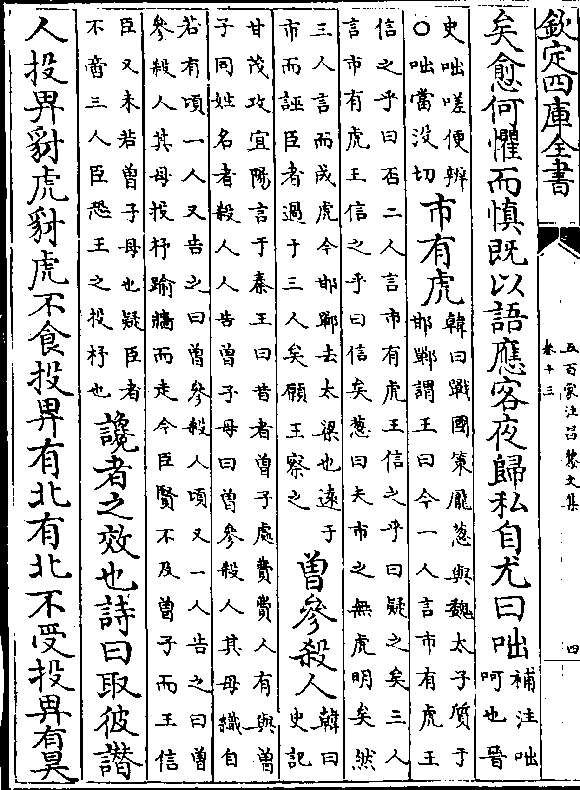 欽定四庫全書
五百家注昌黎文集
卷十三
四
矣愈何懼而慎既以語應客夜歸私自尤曰咄
補注咄
呵也晉
史咄嗟便辨
○咄當没切
市有虎
韓曰戰國策龐葱與魏太子質于
邯鄲謂王曰今一人言市有虎王
信之乎曰否二人言市有虎王信之乎曰疑之矣三人
言市有虎王信之乎曰信矣葱曰夫市之無虎明矣然
三人言而成虎今邯鄲去太梁也遠于
市而誣臣者過于三人矣願王察之
曾參殺人
韓曰
史記
甘茂攻宜陽言于秦王曰昔者曾子處費費人有與曾
子同姓名者殺人人告曾子母曰曾參殺人其母織自
若有頃一人又告之曰曾參殺人頃又一人告之曰曾
參殺人其母投杼踰牆而走今臣賢不及曾子而王信
臣又未若曾子母也疑臣者
不啻三人臣恐王之投杼也
讒者之效也詩曰取彼譖
人投畀豺虎豺虎不食投畀有北有北不受投畀有昊